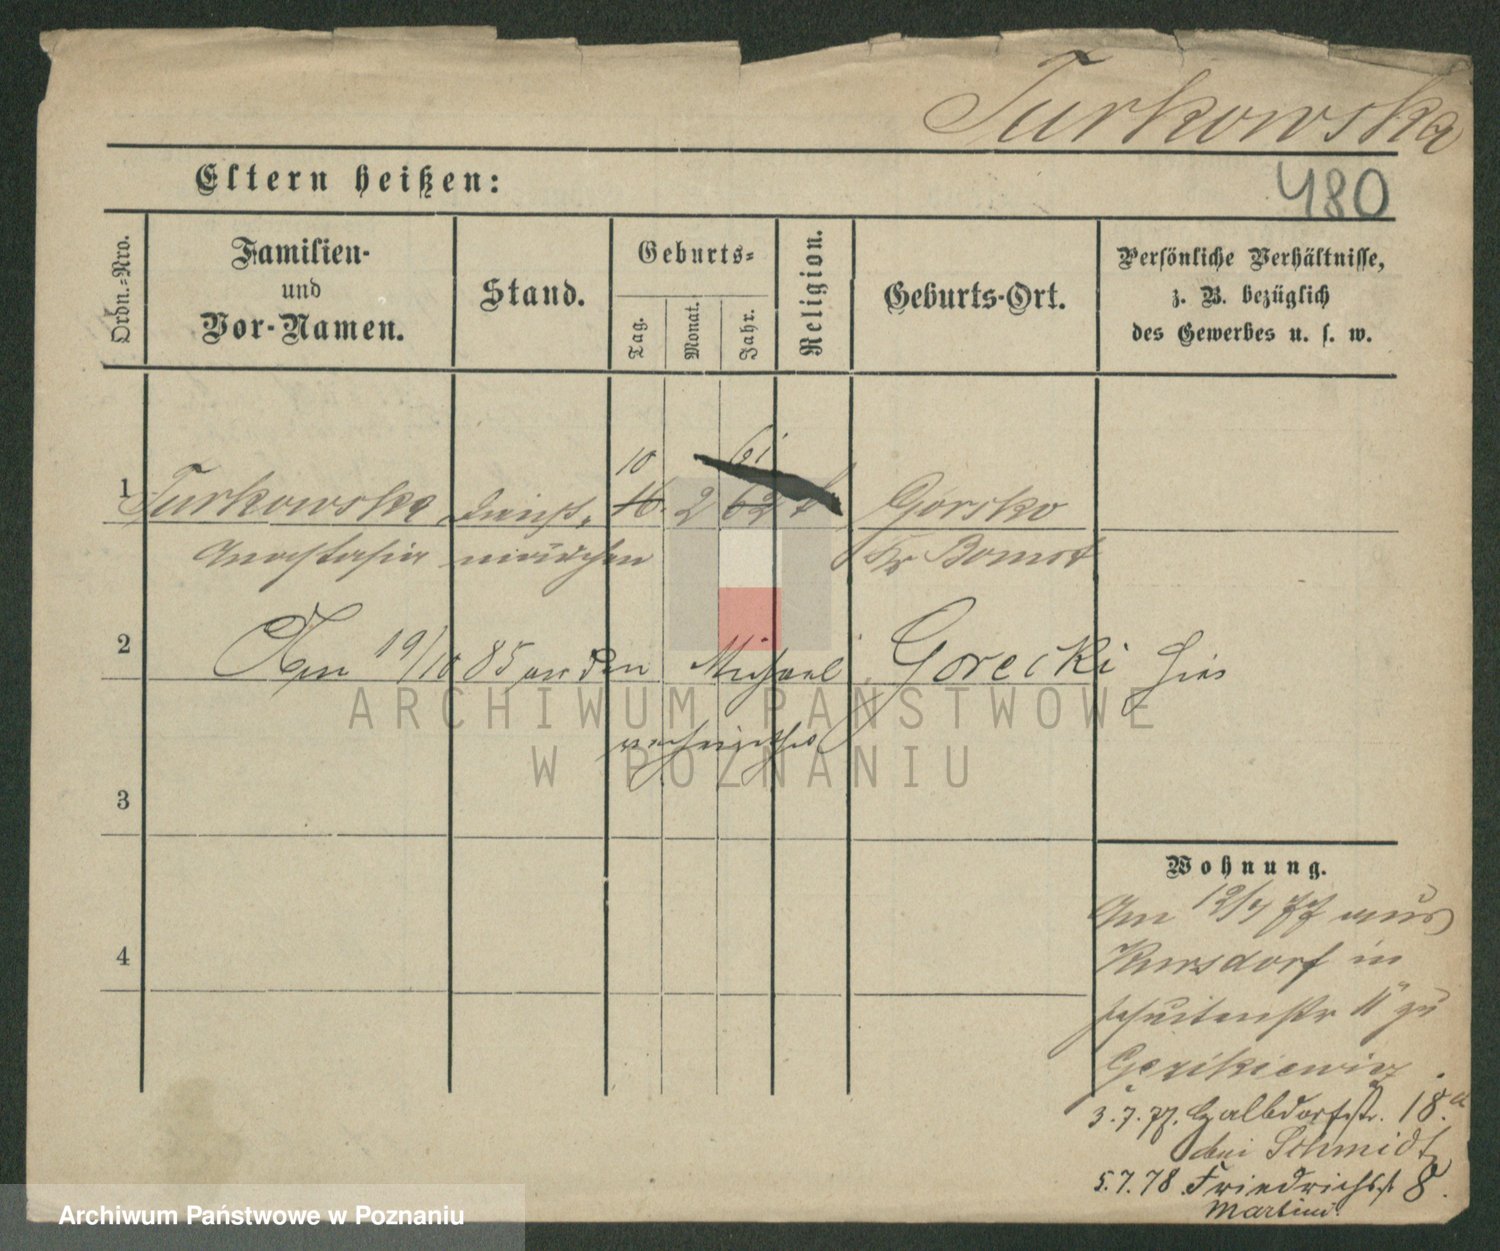 Turkowska
Eltern heißen:
480
Ordn.-Nro.
Familien-
und
Vor-Namen.
Stand.
Geburts-
Tag.
Monat.
Jahr.
Religion.
Geburts-Ort.
Persönliche Verhältnisse,
z. B. bezüglich
des Gewerbes u. s. w.
10 61
1 Turkowska Dienst- 16. 2 62 Gorsko
Anastasia mädchen Kr Bomst
2 Am 19/10 85 an den Michael Gorecki hier
verheirathet
3
4
Wohnung.
Am 12/4 77 aus
Kursdorf in
Jesuitenstr 11 zu
3.7.77. Halbdorfstr. 18.a
bei Schmidt
5.7.78 Friedrichstr 8.
Martini.
ARCHIWUM PAŃSTWOWE
W POZNANIU
Archiwum Państwowe w Poznaniu